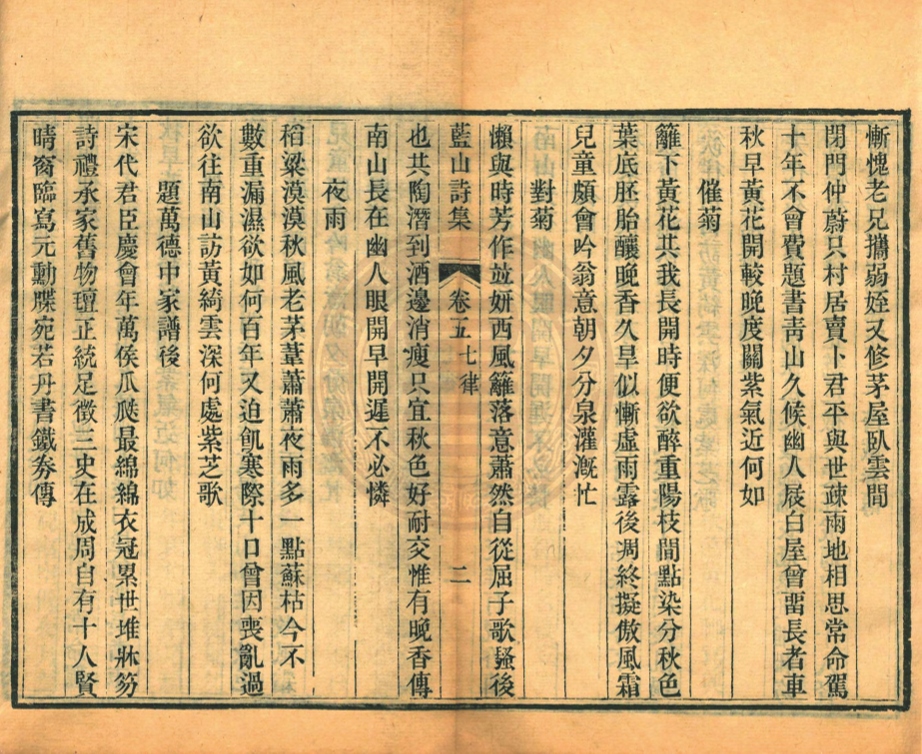 慚愧老兄攜弱姪又修茅屋臥雲間
閉門仲蔚只村居賣卜君平與世疎雨地相思常命駕
十年不會費題書靑山久候幽人屐白屋曾畱長者車
秋早黃花開較晚度關紫氣近何如
催菊
籬下黃花共我長開時便欲醉重陽枝間點染分秋色
葉底胚胎釀晚香久旱似慚虛雨露後凋終擬傲風霜
兒童頗會吟翁意朝夕分泉灌溉忙
對菊
懶與時芳作竝妍西風籬落意蕭然自從屈子歌騷後
藍山詩集
卷五七律
二
也共陶潛到酒邊消瘦只宜秋色好耐交惟有晚香傳
南山長在幽人眼開早開遲不必憐
夜雨
稻粱漠漠秋風老茅葦蕭蕭夜雨多一點蘇枯今不
數重漏濕欲如何百年又迫飢寒際十口曾因喪亂過
欲往南山訪黃綺雲深何處紫芝歌
題萬德中家譜後
宋代君臣慶會年萬侯瓜瓞最綿綿衣冠累世堆牀笏
詩禮承家舊物璮正統足徵三史在成周自有十人賢
晴窗臨寫元勳牒宛若丹書鐵券傳